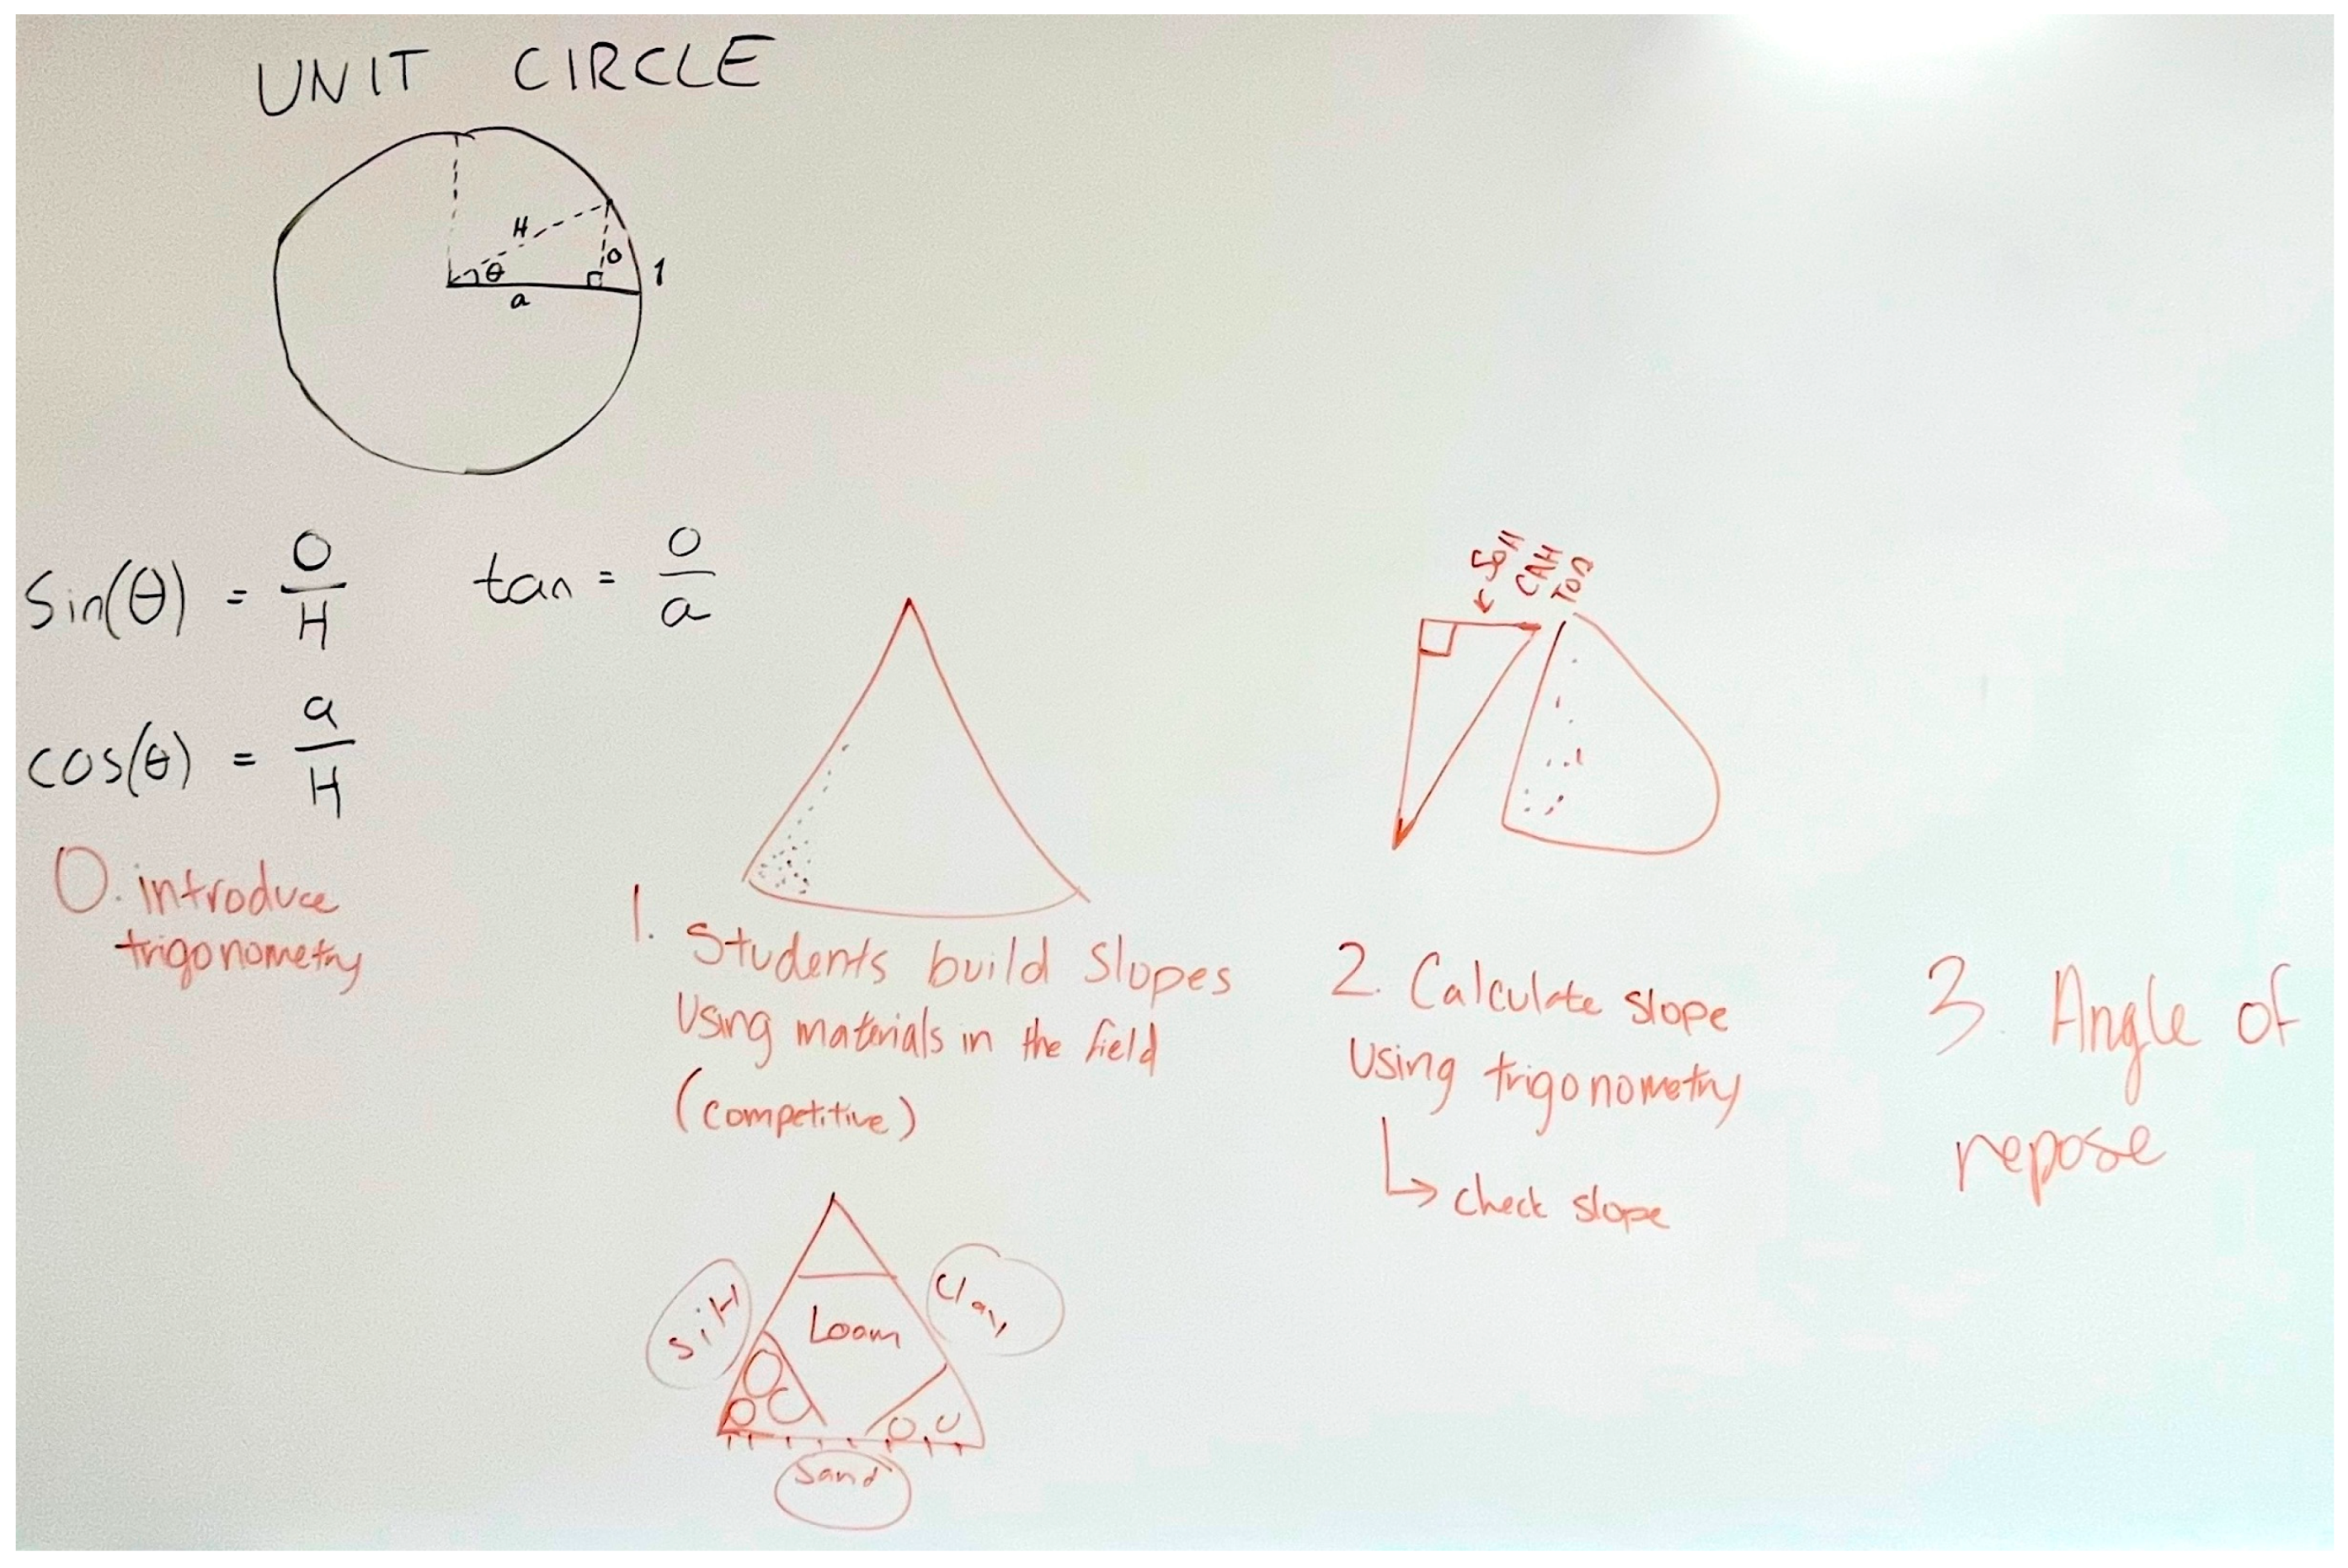 UNIT CIRCLE
H
θ
o
1
a
Sin(θ) = O/H
tan = o/a
cos(θ) = a/H
0. introduce
trigonometry
1. Students build slopes
Using materials in the field
(competitive)
Silt
Clay
Loam
Sand
SOH
CAH
TOA
2. Calculate slope
Using trigonometry
↳ check slope
3 Angle of
repose